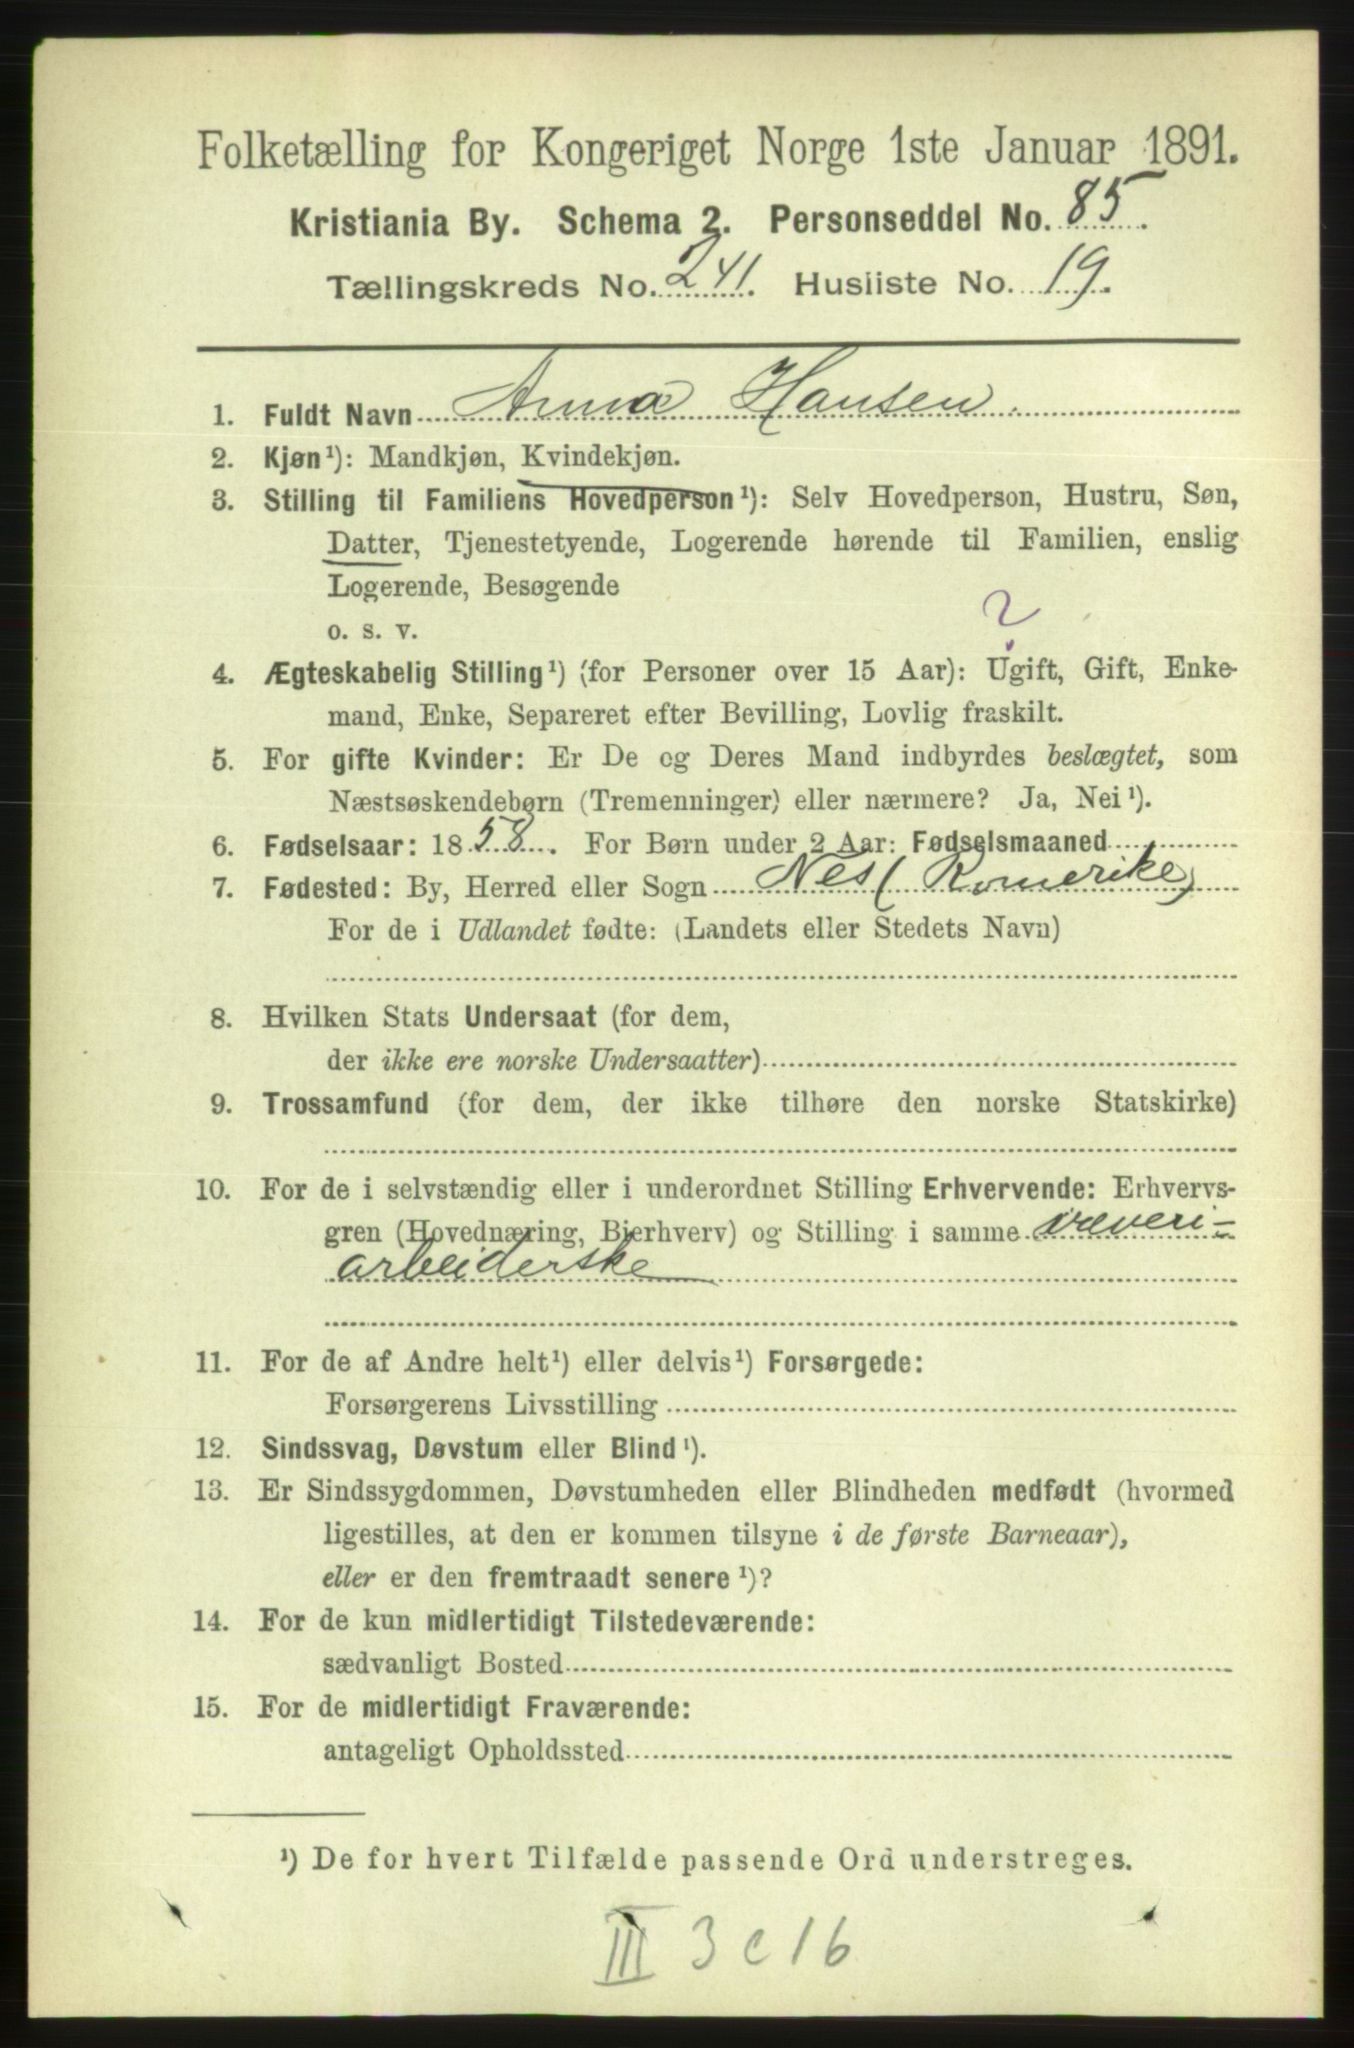 Folketælling for Kongeriget Norge 1ste Januar 1891.
Kristiania By. Schema 2. Personseddel No. 85.
Tællingskreds No. 241. Husliste No. 19.
1. Fuldt Navn Anna Hansen.
2. Kjøn¹): Mandkjøn, Kvindekjøn.
3. Stilling til Familiens Hovedperson¹): Selv Hovedperson, Hustru, Søn,
Datter, Tjenestetyende, Logerende hørende til Familien, enslig
Logerende, Besøgende
o. s. v.
?
4. Ægteskabelig Stilling¹) (for Personer over 15 Aar): Ugift, Gift, Enke-
mand, Enke, Separeret efter Bevilling, Lovlig fraskilt.
5. For gifte Kvinder: Er De og Deres Mand indbyrdes beslægtet, som
Næstsøskendebørn (Tremenninger) eller nærmere? Ja, Nei¹).
6. Fødselsaar: 1858. For Børn under 2 Aar: Fødselsmaaned
7. Fødested: By, Herred eller Sogn Nes (Romerike)
For de i Udlandet fødte: (Landets eller Stedets Navn)
8. Hvilken Stats Undersaat (for dem,
der ikke ere norske Undersaatter)
9. Trossamfund (for dem, der ikke tilhøre den norske Statskirke)
10. For de i selvstændig eller i underordnet Stilling Erhvervende: Erhvervs-
gren (Hovednæring, Bierhverv) og Stilling i samme væveri-
arbeiderske
11. For de af Andre helt¹) eller delvis¹) Forsørgede:
Forsørgerens Livsstilling
12. Sindssvag, Døvstum eller Blind¹).
13. Er Sindssygdommen, Døvstumheden eller Blindheden medfødt (hvormed
ligestilles, at den er kommen tilsyne i de første Barneaar),
eller er den fremtraadt senere¹)?
14. For de kun midlertidigt Tilstedeværende:
sædvanligt Bosted
15. For de midlertidigt Fraværende:
antageligt Opholdssted
¹) De for hvert Tilfælde passende Ord understreges.
III 3 c 16